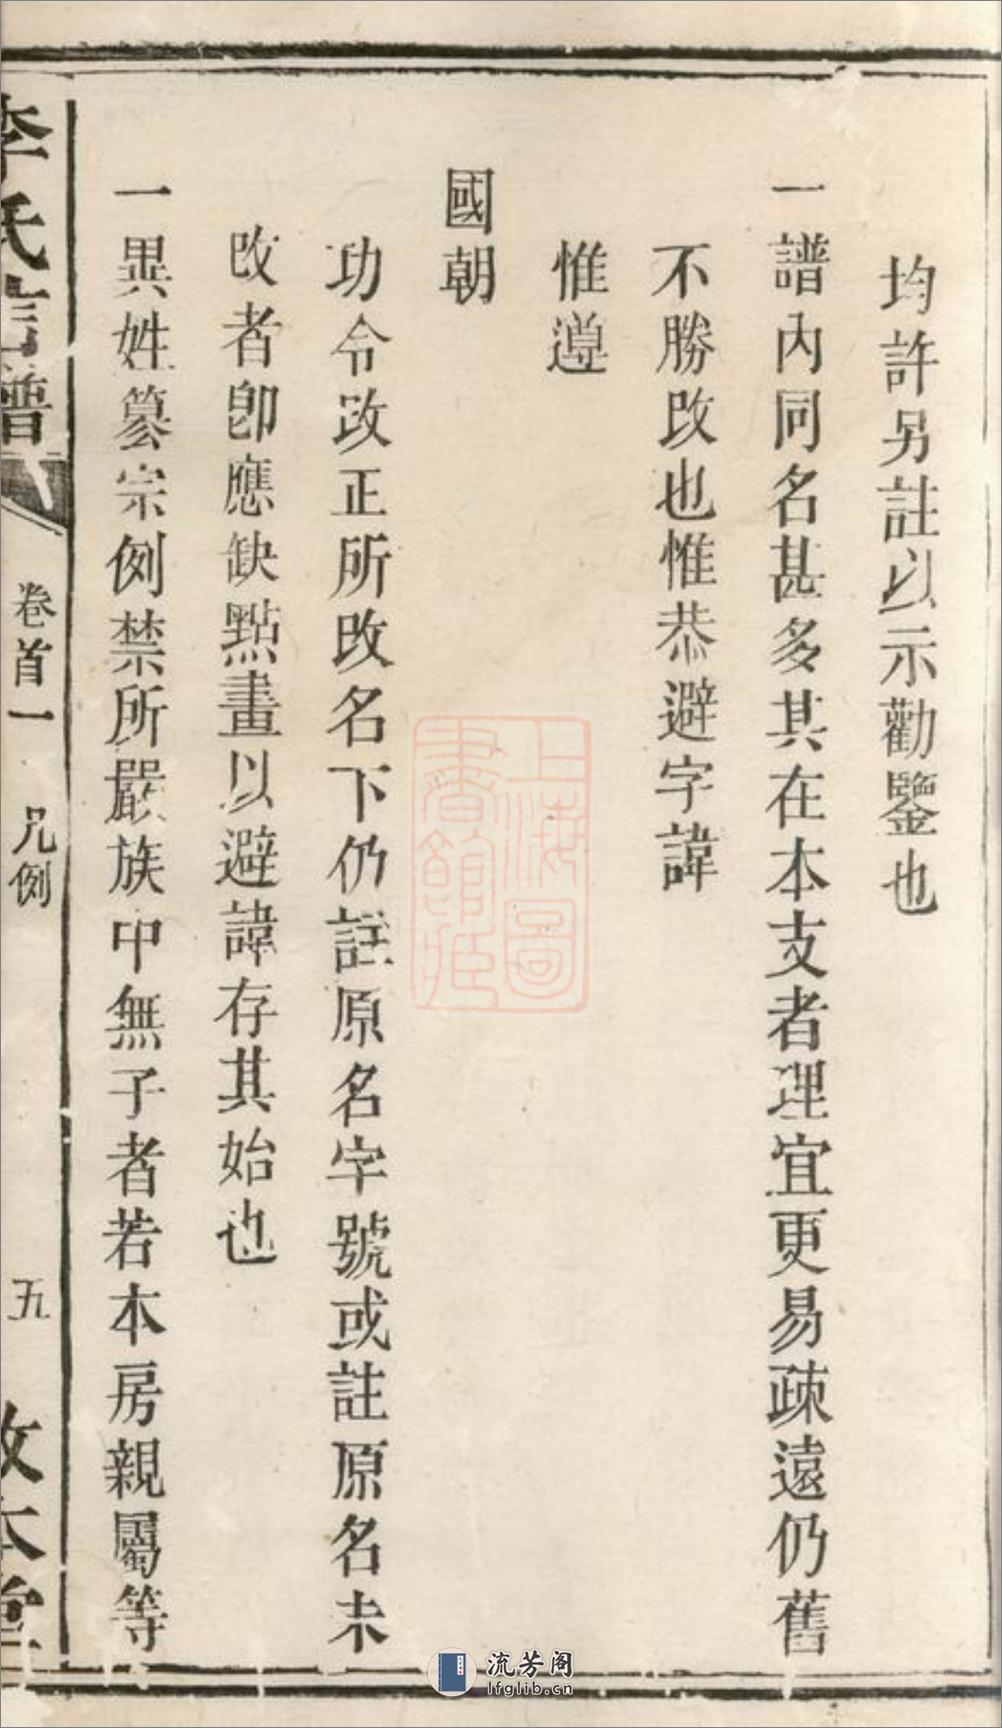 均許另註以示勸鑒也
一譜內同名甚多其在本支者理宜更易疎遠仍舊
不勝改也惟恭避字諱
惟遵
國朝
功令改正所改名下仍註原名字號或註原名未
改者卽應缺點畫以避諱存其始也
一異姓篡宗例禁所嚴族中無子者若本房親屬等
李氏宗譜
卷首一 凡例
五
本堂
上海圖
書館藏
流芳阁
lfglib.cn